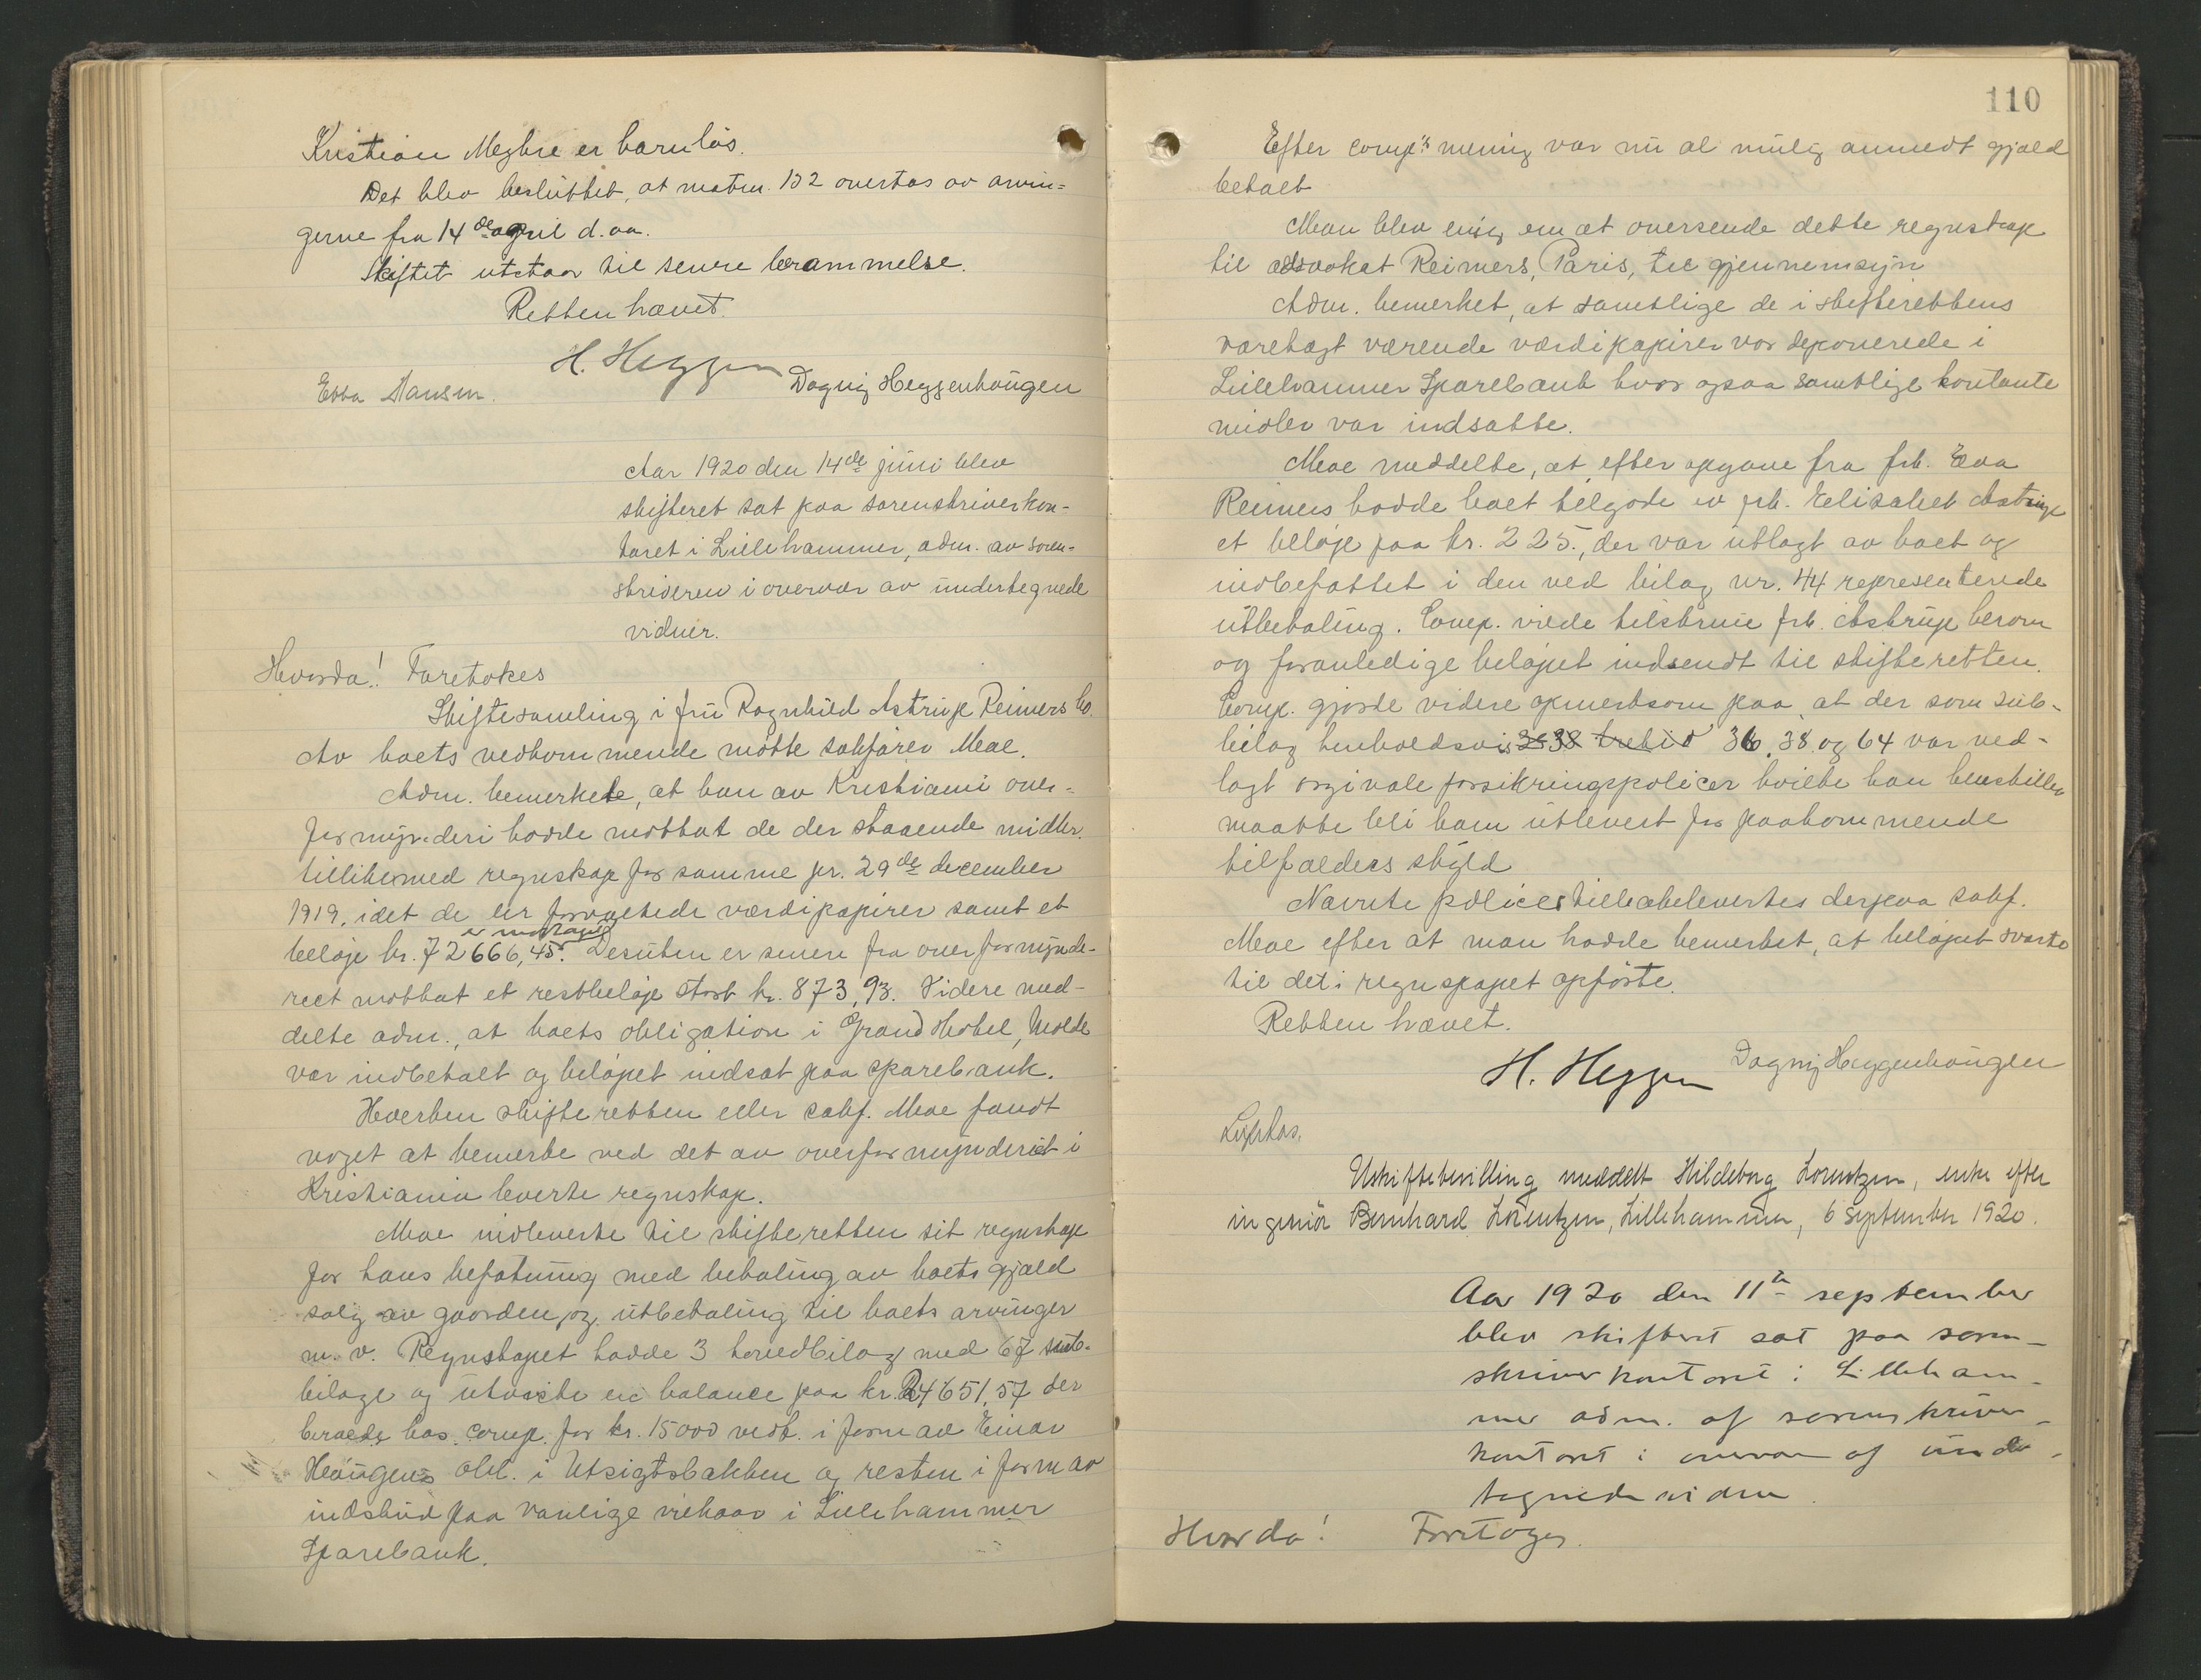 Kristian Mezbre er barnløs.
Det blev besluttet, at matrn. 132 overtas av arvin-
gerne fra 14de april d. aa.
Skiftet utstaar til senere berammelse.
Retten hævet.
H. Heggen
Ebba Hansen. Dagny Heggenhougen
Aar 1920 den 14de juni blev
skifteret sat paa sorenskriverkon-
toret i Lillehammer, adm. av soren-
skriveren i overvær av undertegnede
vidner.
Hvorda! Foretokes
Skiftesamling i fru Ragnhild Astrup Reimers bo.
Av boets vedkommende møtte sakfører Moe.
Adm. bemerkete, at han av Kristiania over-
formynderi hadde mottat de der staaende midler.
tillikemed regnskap for samme pr. 29de december
1919, idet de der forvaltede værdipapirer samt et
beløp kr. 72666,45. er mottaget Desuten er senere fra overformynde-
riet mottat et restbeløp stort kr. 873,93. Videre med-
delte adm., at boets obligation i Grand Hotel, Molde
var indbetalt og beløpet indsat paa sparebank.
Hverken skifteretten eller sakf. Moe fandt
noget at bemerke ved det av overformynderiet i
Kristiania leverte regnskap.
Moe indleverte til skifteretten sit regnskap
for hans befatning med betaling av boets gjæld
salg av gaarden, og utbetaling til boets arvinger
m. v. Regnskapet hadde 3 hovedbilag med 67 sub-
bilage og utviste en balance paa kr. 24651,57 der
beroede hos comp. for kr. 15000 vedk. i form av Einar
Haugens obl. i Utsigtsbakken og resten i form av
indskud paa vanlige vilkaar i Lillehammer
Sparebank.
110
Efter comp's mening var nu al mulig anmeldt gjæld
betalt
Man blev enig om at oversende dette regnskap
til advokat Reimers, Paris, til gjennemsyn
Adm. bemerket, at samtlige de i skifterettens
varetægt værende værdipapirer var deponerede i
Lillehammer Sparebank hvor ogsaa samtlige kontante
midler var indsatte.
Moe meddelte, at efter opgave fra frk. Eva
Reimers hadde boet tilgode av frk. Elisabet Astrup
et beløp paa kr. 225., der var utlagt av boet og
indbefattet i den ved bilag nr. 44 representerede
utbetaling. Comp. vilde tilskrive frk. Astrup herom
og foranledige beløpet indsendt til skifteretten.
Comp. gjorde videre opmerksom paa, at der som sub-
bilag henholdsvis 36, 38 og 64 var ved-
lagt orginale forsikringspolicer hvilke han henstiller
maatte bli ham utlevert for paakommende
tilfælders skyld
Nævnte policer tilbakelevertes derpaa sakf.
Moe efter at man hadde bemerket, at beløpet svarte
til det i regnskapet opførte.
Retten hævet.
H. Heggen Dagny Heggenhougen
Uskiftebevilling meddelt Hildeborg Lorentzen, enke efter
ingeniör Bernhard Lorentzen, Lillehammer, 6 september 1920.
Aar 1920 den 11te september
blev skifteret sat paa soren-
skriverkontoret i Lilleham-
mer adm. af sorenskriver-
kontoret i overvær af under-
tegnede vidner.
Hvorda! Foretoges.